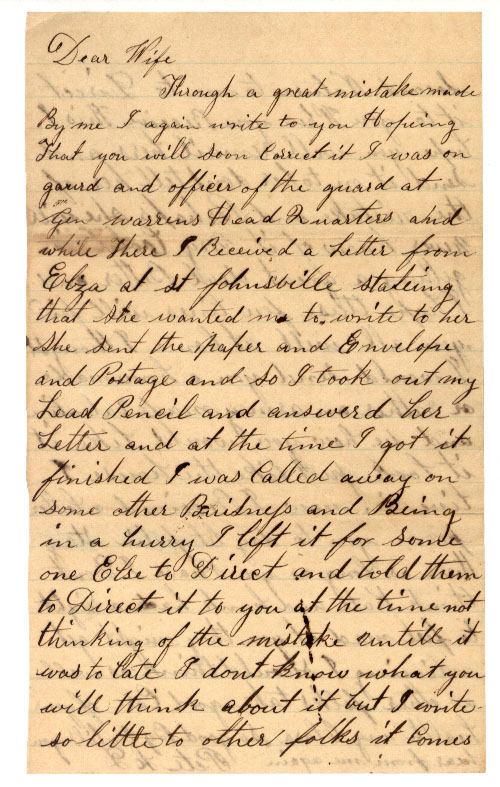 Dear Wife
Through a great mistake made
By me I again write to you Hopeing
That you will soon Correct it I was on
gaurd and officer of the guard at
Gen warrens Head Quarters and
while there I Received a Letter from
Eliza at st Johnsville stateing
that she wanted me to write to her
she sent the paper and Envelope
and Postage and so I took out my
Lead Pencil and answerd her
Letter and at the time I got it
finished I was Called away on
some other Buisness and Being
in a hurry I left it for some
one Else to Direct and told them
to Direct it to you at the time not
thinking of the mistake untill it
was to late I dont know what you
will think about it but I write
so little to other folks it Comes